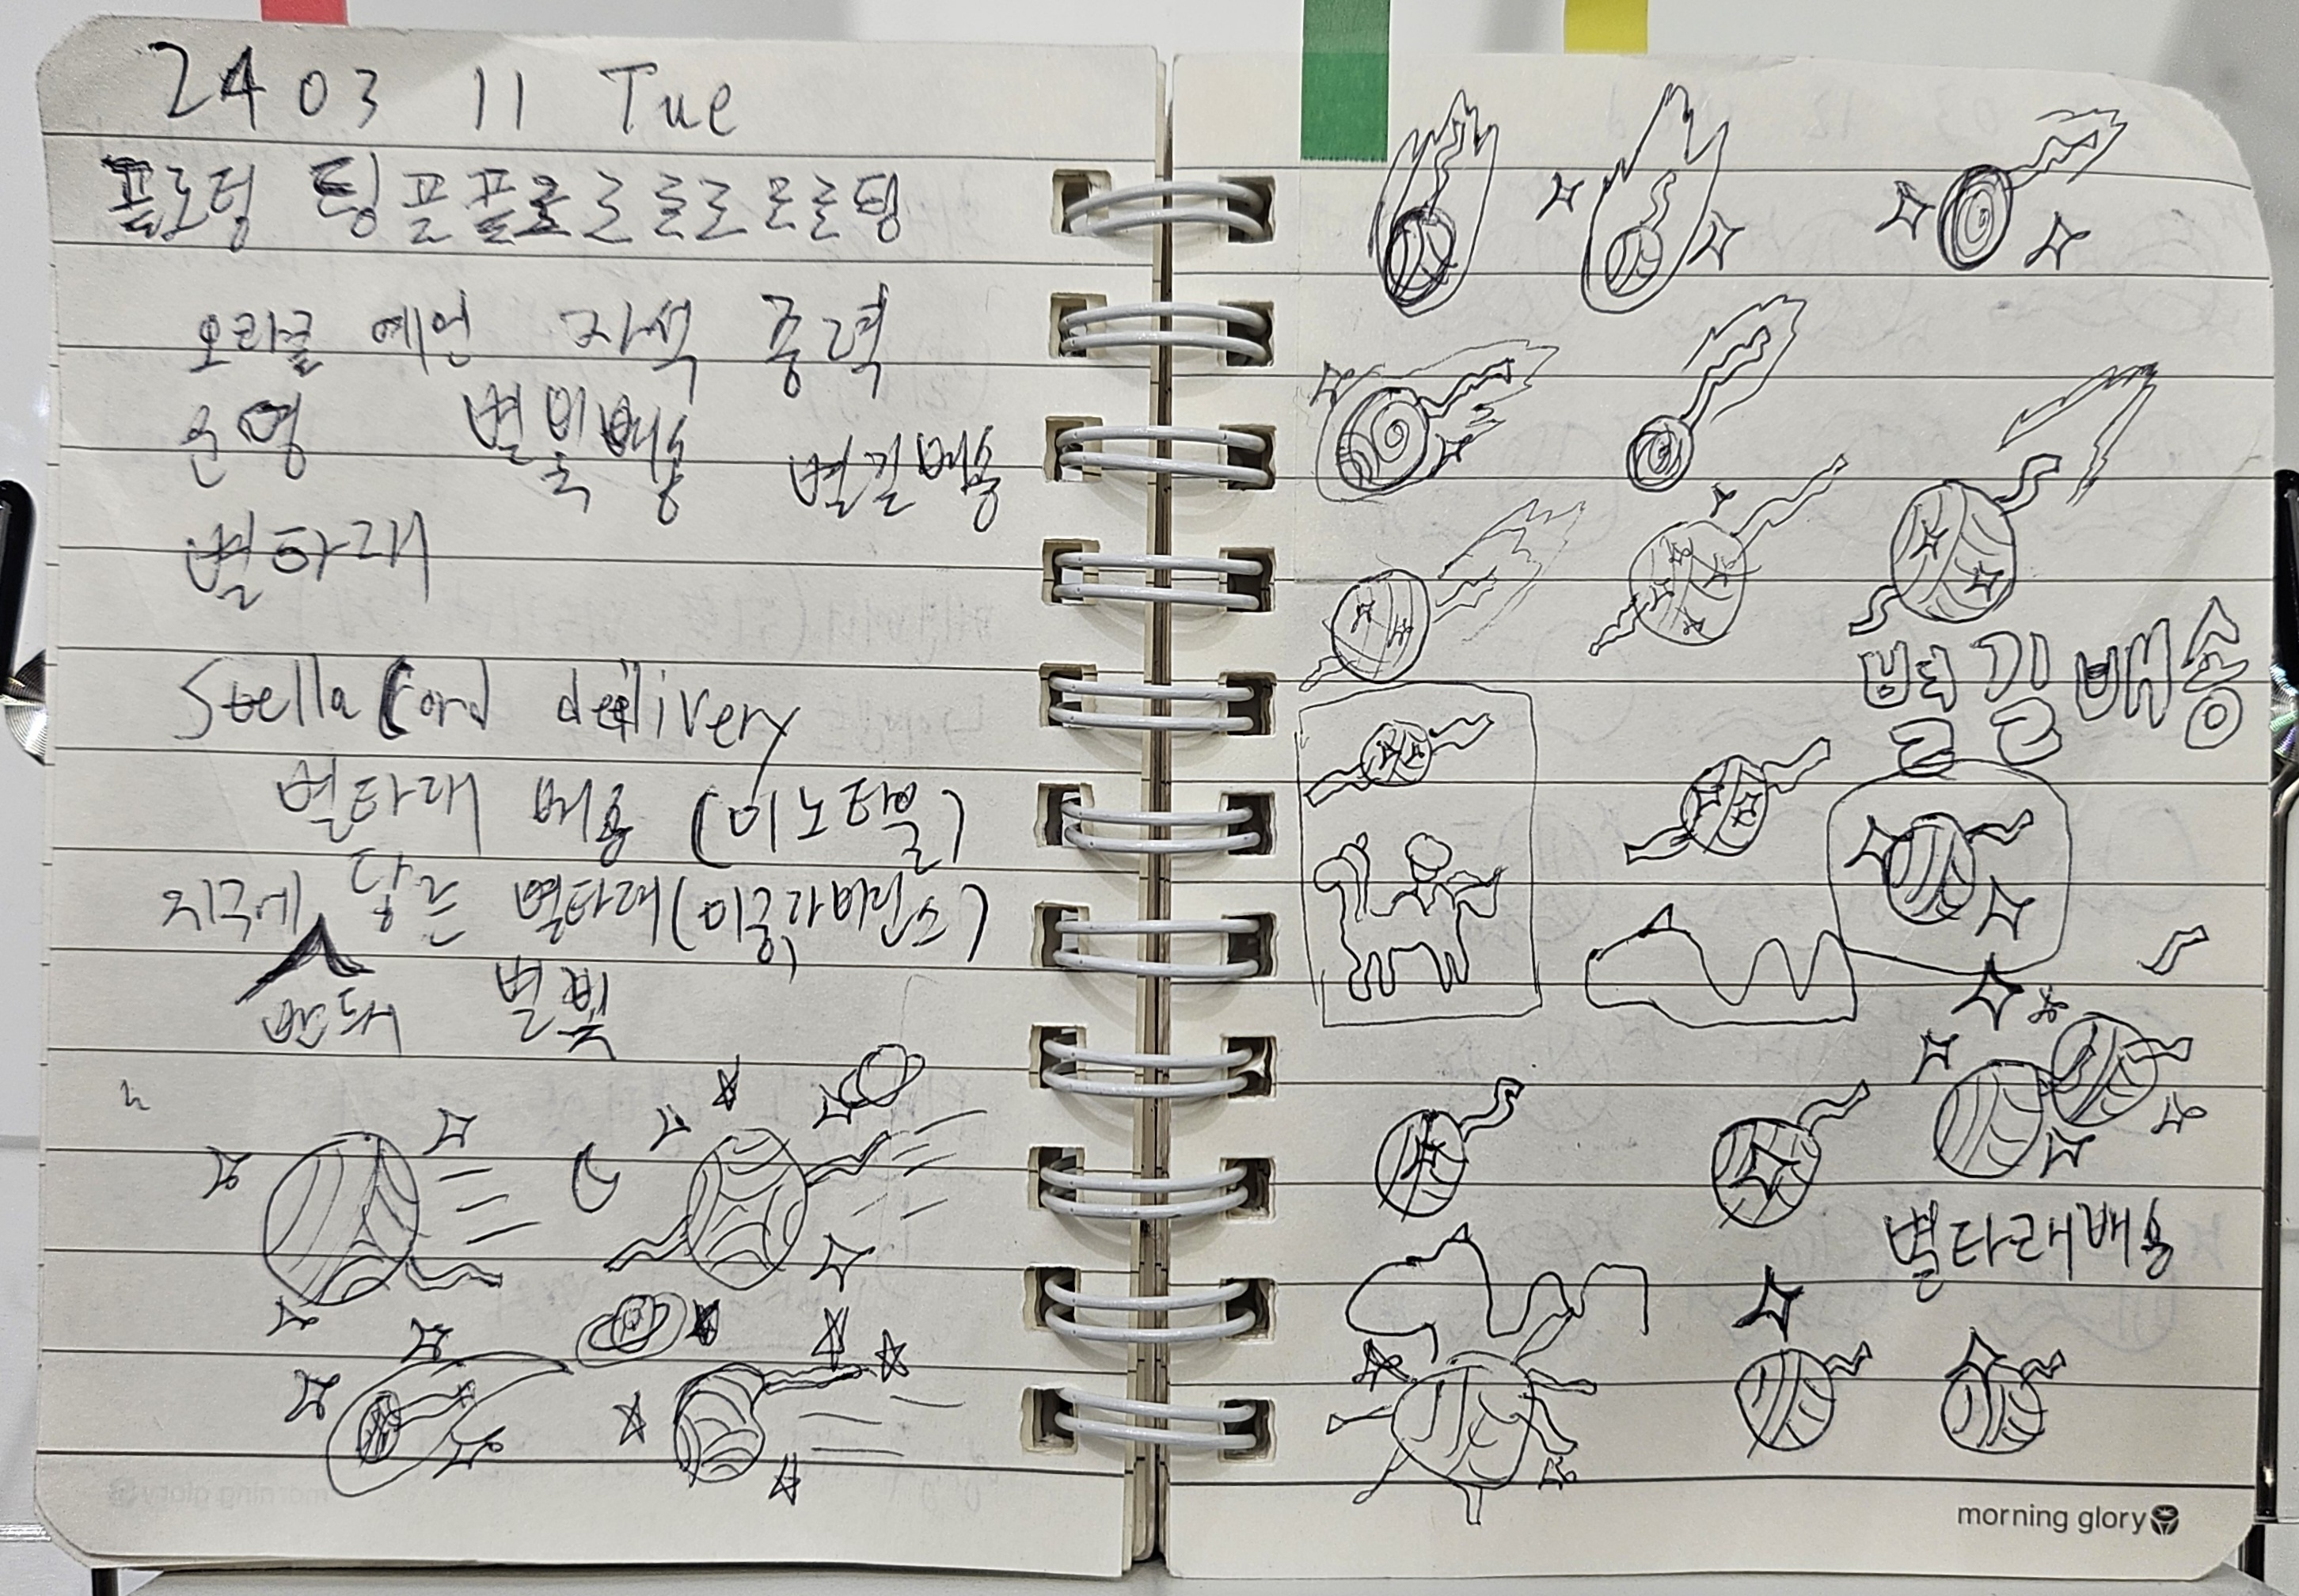 24 03 11 Tue
플로팅 팅플플로르르로로르팅
오라클 예언 자석 중력
운명 별똑배송 별길배송
별타래
Stella Cord delivery
별타래 배송 (미노타일)
지구에 닿은 별타래 (미궁라비린스)
별빛
별길배송
별타래배송
morning glory